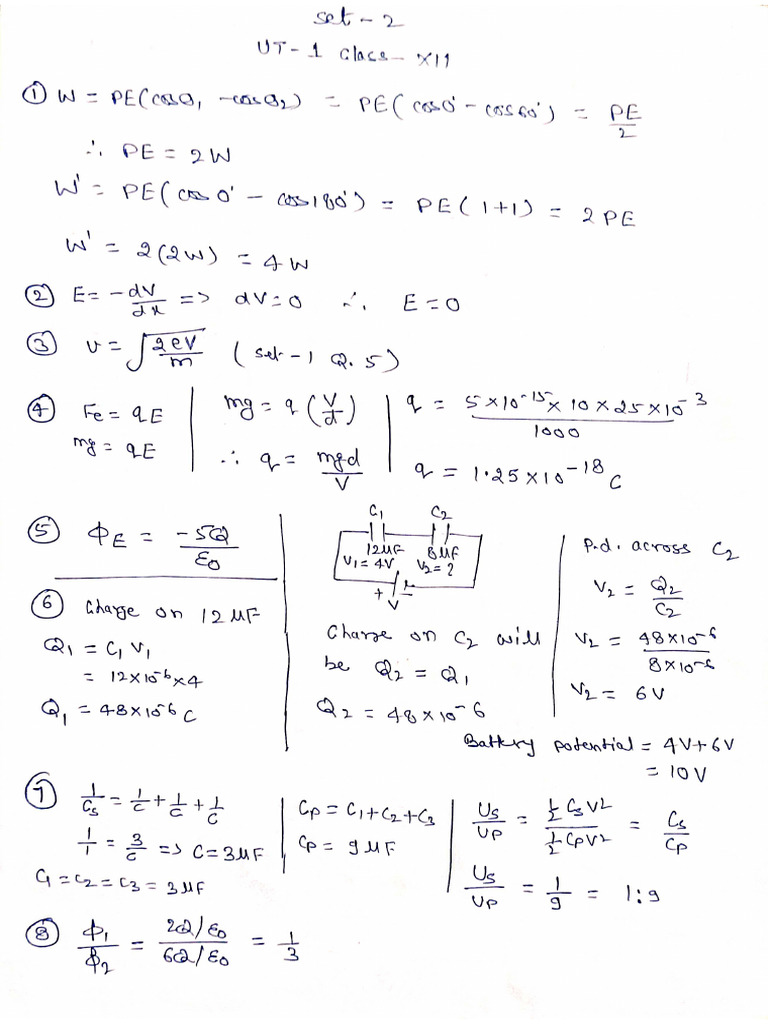 Set - 2
UT - 1 Class - XII
① W = PE(cosθ₁ - cosθ₂) = PE(cos0° - cos60°) = PE/2
∴ PE = 2W
W' = PE(cos0° - cos180°) = PE(1+1) = 2PE
W' = 2(2W) = 4W
② E = -dV/dx => dV=0 ∴ E=0
③ v = √(2eV/m) (set-1 Q.5)
④ Fe = qE
mg = qE
mg = q(V/d)
∴ q = mgd/V
q = 5×10⁻¹⁵×10×25×10⁻³/1000
q = 1.25×10⁻¹⁸ C
⑤ ΦE = -5Q/ε₀
⑥ Charge on 12μF
Q₁ = C₁V₁
= 12×10⁻⁶×4
Q₁ = 48×10⁻⁶ C
C₁ C₂
12μF 8μF
V₁=4V V₂=?
+ V
Charge on C₂ will
be Q₂ = Q₁
Q₂ = 48×10⁻⁶
P.d. across C₂
V₂ = Q₂/C₂
V₂ = 48×10⁻⁶/8×10⁻⁶
V₂ = 6V
Battery potential = 4V+6V
= 10V
⑦ 1/Cs = 1/C + 1/C + 1/C
1/1 = 3/C => C=3μF
C₁=C₂=C₃=3μF
Cp = C₁+C₂+C₃
Cp = 9μF
Us/Up = ½CsV²/½CpV² = Cs/Cp
Us/Up = 1/9 = 1:9
⑧ Φ₁/Φ₂ = 2Q/ε₀/6Q/ε₀ = 1/3